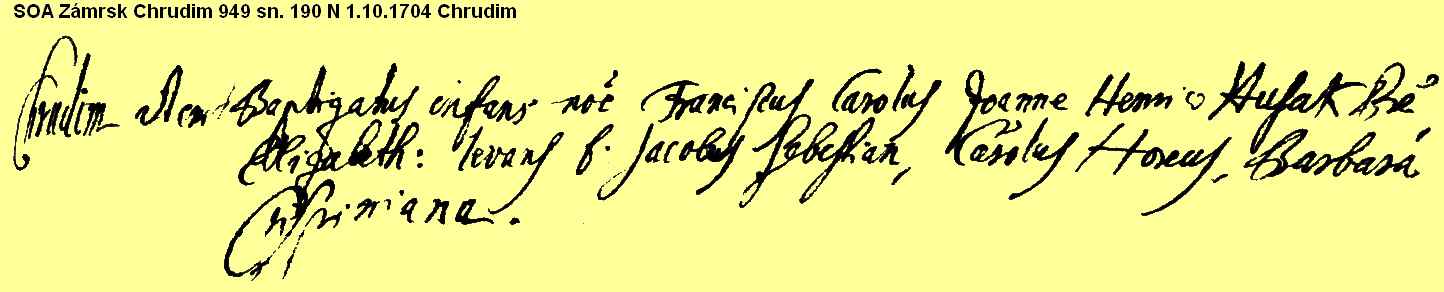 SOA Zámrsk Chrudim 949 sn. 190 N 1.10.1704 Chrudim
Chrudim Item Baptizatus infans noē Franciscus Carolus Joanne Henrico Husak
Elizabeth: levans f. Jacobus Sebestian, Carolus Horeus, Barbara
Crispiniana.